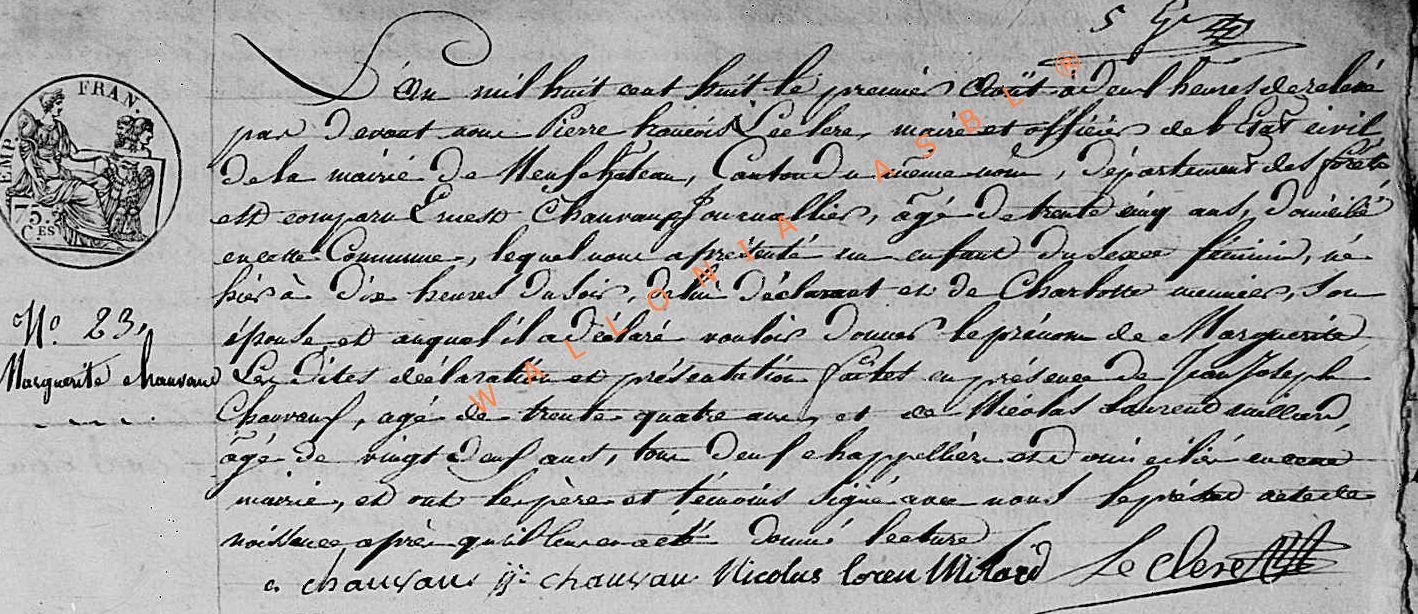 FRAN.
EMP.
75.
C.ES
L'an mil huit cent huit le premier Août à deux heures de relevé
par devant nous Pierre francois Leclerc, maire et officier de l'Etat civil
de la mairie de Neufchateau, Canton du même nom, département des forêts
est comparu Ernest Chauvaux Journallier, âgé de trente cinq ans, domicilié
en cette Commune, lequel nous a présenté un enfant du sexe féminin, né
hier à dix heures du soir, de lui déclarant et de Charlotte meunier, son
épouse et auquel il a déclaré vouloir donner le prénom de Marguerite
Les dites déclaration et présentation faites en présence de Jean Joseph
Chauvaux, agé de trente quatre ans, et de Nicolas Laurend millard,
âgé de vingt deux ans, tous deux chappelliers et domiciliés en cette
mairie, et ont le père et témoins signé avec nous le présent acte de
naissance après qu'il leur en a été donné lecture
No. 23,
Marguerite chauvaux
e chauvaux jj. chauvau Nicolas loren Milard Le clerc
WALLONIA ASBL ®